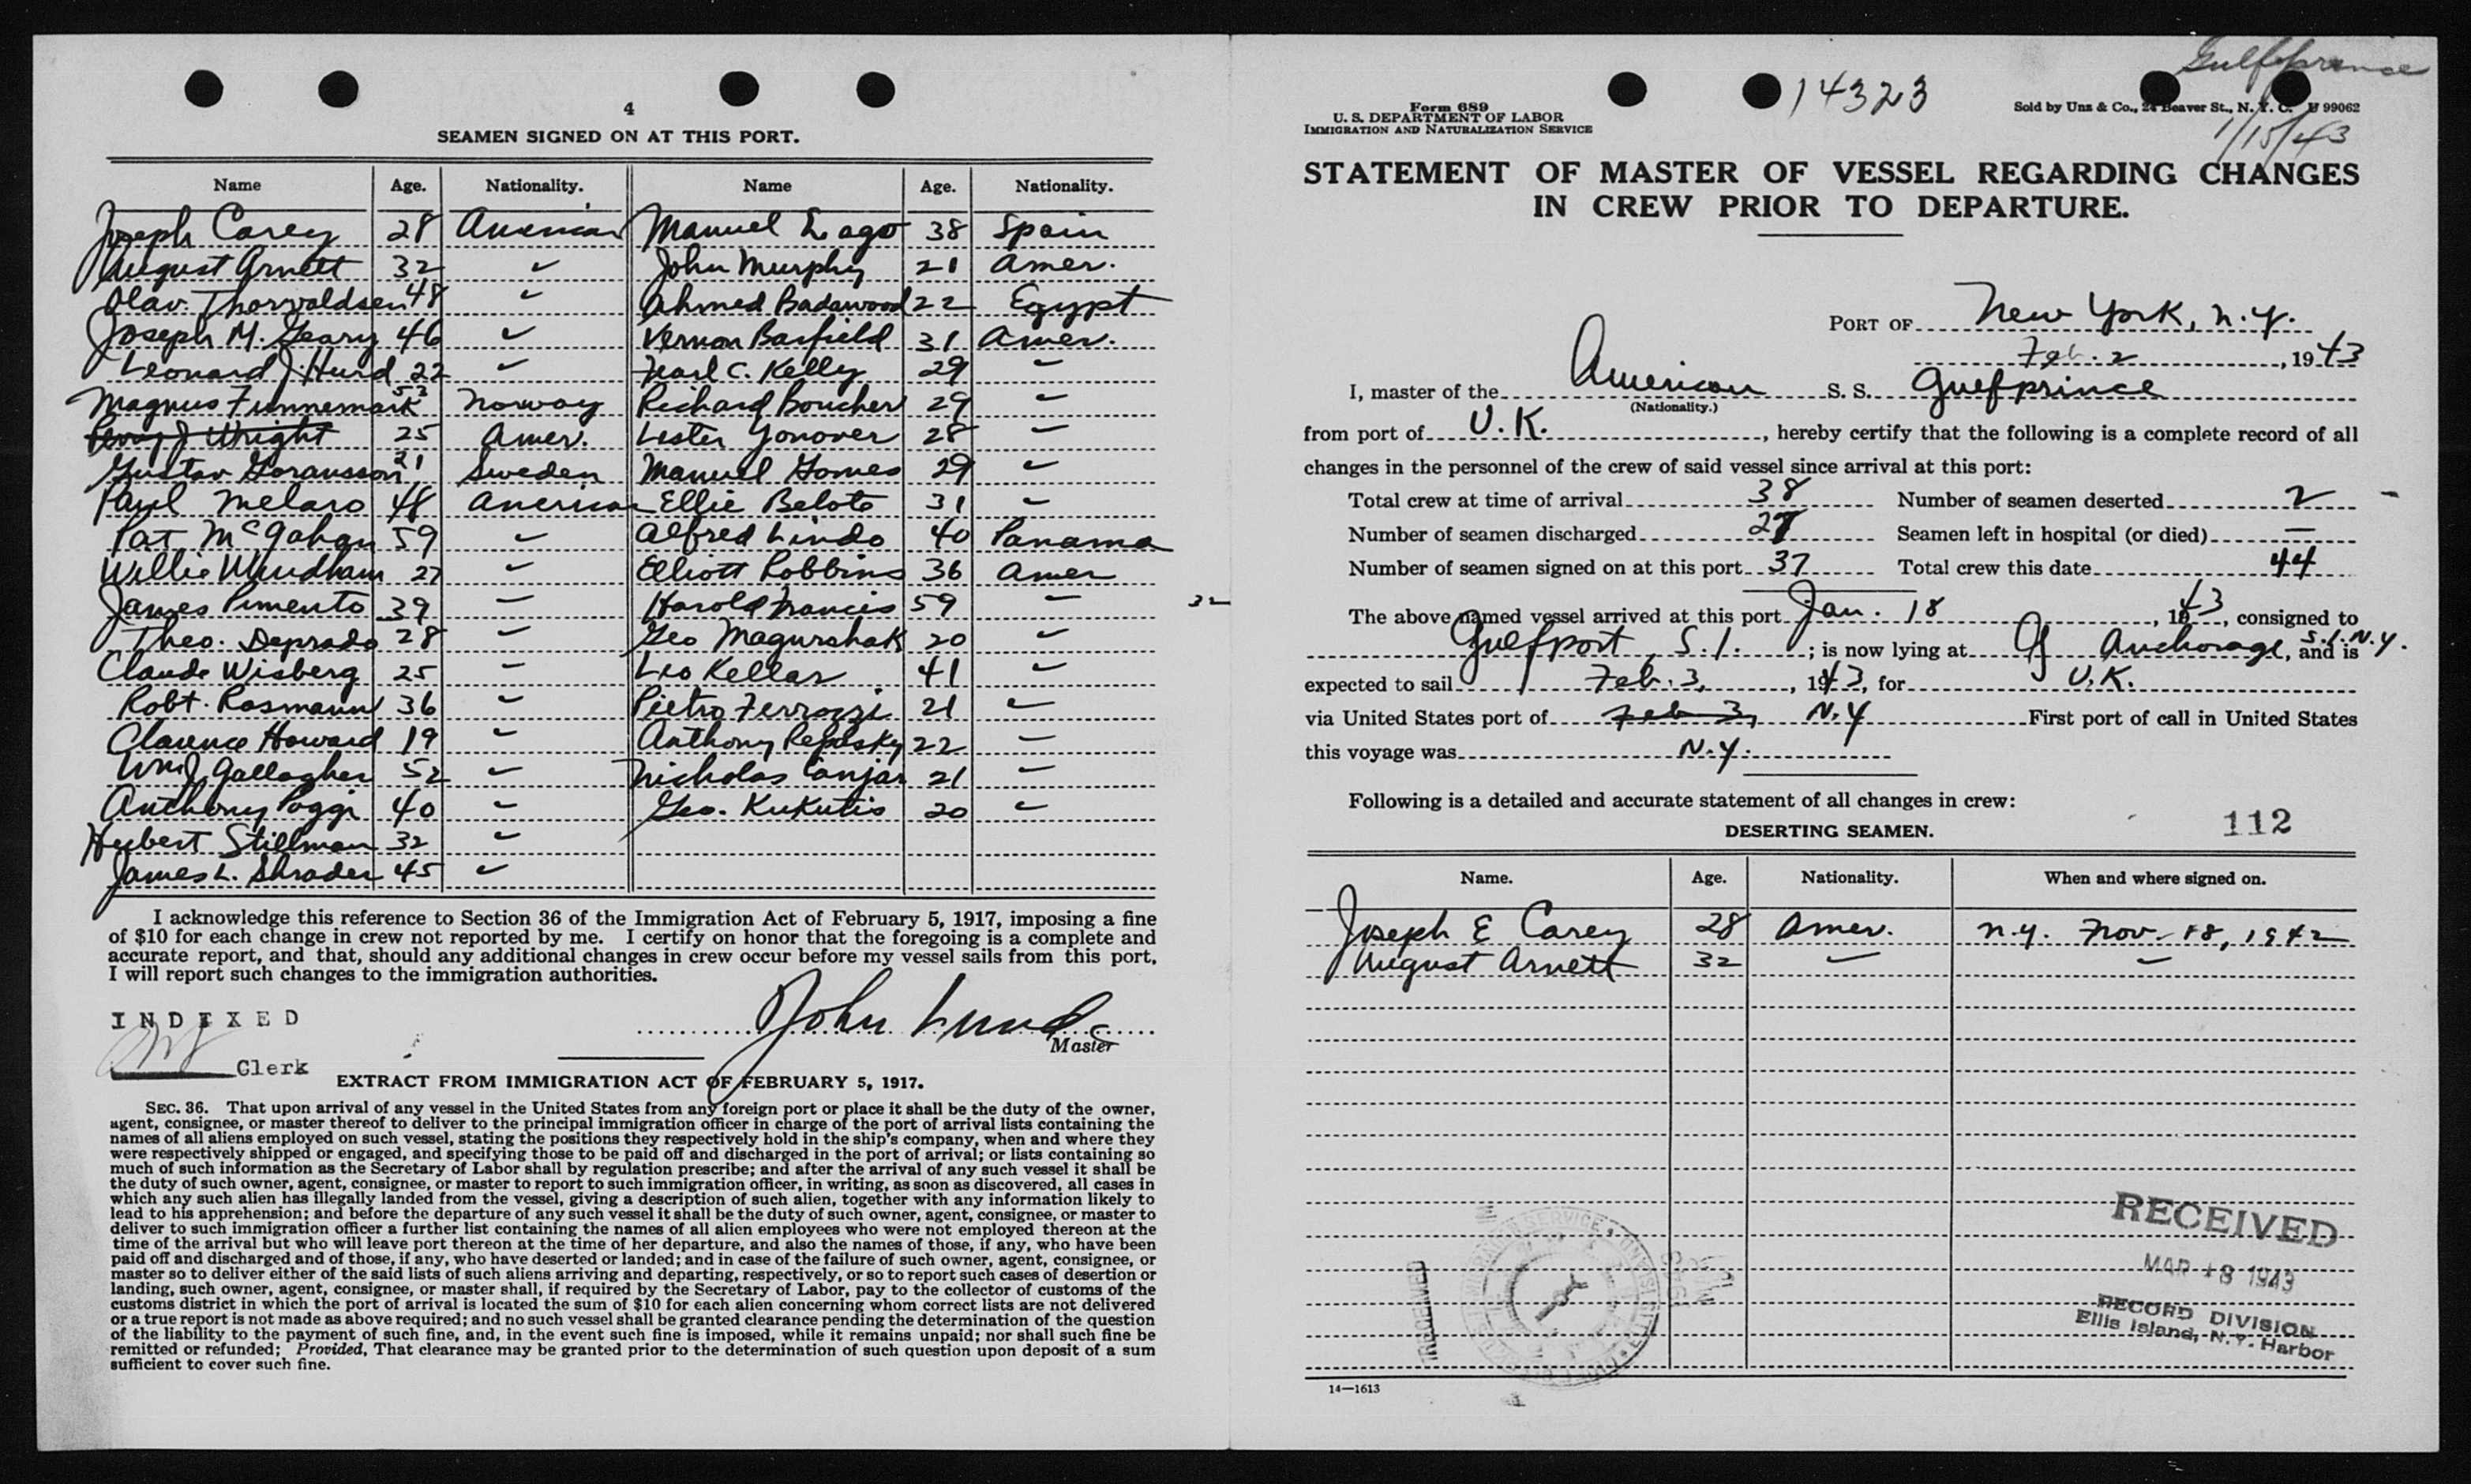 4
SEAMEN SIGNED ON AT THIS PORT.
Name Age. Nationality. Name Age. Nationality.
Joseph Carey 28 American Manuel Lago 38 Spain
August Arnett 32 ✓ John Murphy 21 Amer.
Olav Thorvaldsen 48 ✓ Ahmed Badawood 22 Egypt
Joseph M. Geary 46 ✓ Vernon Barfield 31 Amer.
Leonard J. Hurd 22 ✓ C. Kelly 29 ✓
Magnus Finnemark 53 Norway Richard Boucher 29 ✓
Perry J Wright 25 Amer. Lester Yonover 28 ✓
Gustav Goransson 21 Sweden Manuel Gomes 29 ✓
Paul Melaro 48 American Ellie Belote 31 ✓
Pat McGahan 59 ✓ Alfred Lindo 40 Panama
Willie Windham 27 ✓ Elliott Robbins 36 Amer
James Pimento 39 ✓ Harold Francis 59 ✓ 32
Theo. Deprado 28 ✓ Geo Magurshak 20 ✓
Claude Wisberg 25 ✓ Leo Kellar 41 ✓
Robt. Rasmann 36 ✓ Pietro Ferrozzi 21 ✓
Clarence Howard 19 ✓ Anthony Repasky 22 ✓
Wm J. Gallagher 52 ✓ Nicholas Canjar 21 ✓
Anthony Poggi 40 ✓ Geo. Kukutis 20 ✓
Hubert Stillman 32 ✓
James L. Shrader 45 ✓
I acknowledge this reference to Section 36 of the Immigration Act of February 5, 1917, imposing a fine
of $10 for each change in crew not reported by me. I certify on honor that the foregoing is a complete and
accurate report, and that, should any additional changes in crew occur before my vessel sails from this port,
I will report such changes to the immigration authorities.
INDEXED
John Lund
Master
Clerk
EXTRACT FROM IMMIGRATION ACT OF FEBRUARY 5, 1917.
SEC. 36. That upon arrival of any vessel in the United States from any foreign port or place it shall be the duty of the owner,
agent, consignee, or master thereof to deliver to the principal immigration officer in charge of the port of arrival lists containing the
names of all aliens employed on such vessel, stating the positions they respectively hold in the ship's company, when and where they
were respectively shipped or engaged, and specifying those to be paid off and discharged in the port of arrival; or lists containing so
much of such information as the Secretary of Labor shall by regulation prescribe; and after the arrival of any such vessel it shall be
the duty of such owner, agent, consignee, or master to report to such immigration officer, in writing, as soon as discovered, all cases in
which any such alien has illegally landed from the vessel, giving a description of such alien, together with any information likely to
lead to his apprehension; and before the departure of any such vessel it shall be the duty of such owner, agent, consignee, or master to
deliver to such immigration officer a further list containing the names of all alien employees who were not employed thereon at the
time of the arrival but who will leave port thereon at the time of her departure, and also the names of those, if any, who have been
paid off and discharged and of those, if any, who have deserted or landed; and in case of the failure of such owner, agent, consignee, or
master so to deliver either of the said lists of such aliens arriving and departing, respectively, or so to report such cases of desertion or
landing, such owner, agent, consignee, or master shall, if required by the Secretary of Labor, pay to the collector of customs of the
customs district in which the port of arrival is located the sum of $10 for each alien concerning whom correct lists are not delivered
or a true report is not made as above required; and no such vessel shall be granted clearance pending the determination of the question
of the liability to the payment of such fine, and, in the event such fine is imposed, while it remains unpaid; nor shall such fine be
remitted or refunded; Provided, That clearance may be granted prior to the determination of such question upon deposit of a sum
sufficient to cover such fine.
Gulfprince
14323
Form 689
U. S. DEPARTMENT OF LABOR
IMMIGRATION AND NATURALIZATION SERVICE
Sold by Unz & Co., 24 Beaver St., N. Y. C. H 99062
1/15/43
STATEMENT OF MASTER OF VESSEL REGARDING CHANGES
IN CREW PRIOR TO DEPARTURE.
PORT OF New York, N.Y.
Feb. 2, 1943
I, master of the American S. S. Gulfprince
(Nationality.)
from port of U.K., hereby certify that the following is a complete record of all
changes in the personnel of the crew of said vessel since arrival at this port:
Total crew at time of arrival 38 Number of seamen deserted 2
Number of seamen discharged 27 Seamen left in hospital (or died) —
Number of seamen signed on at this port 37 Total crew this date 44
The above named vessel arrived at this port Jan. 18, 1943, consigned to
Gulfport, S.I.; is now lying at Anchorage, S.I. N.Y. and is
expected to sail Feb. 3, 1943, for U.K.
via United States port of Feb 3, N.Y First port of call in United States
this voyage was N.Y.
Following is a detailed and accurate statement of all changes in crew:
112
DESERTING SEAMEN.
Name. Age. Nationality. When and where signed on.
Joseph E Carey 28 Amer. N.Y. Nov. 18, 1942
August Arnett 32 ✓ ✓
RECEIVED
MAR 18 1943
RECORD DIVISION
Ellis Island, N. Y. Harbor
14—1613